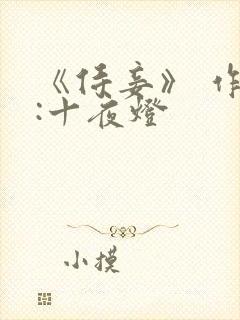 《侯妾》 作
:十夜燈
小摸